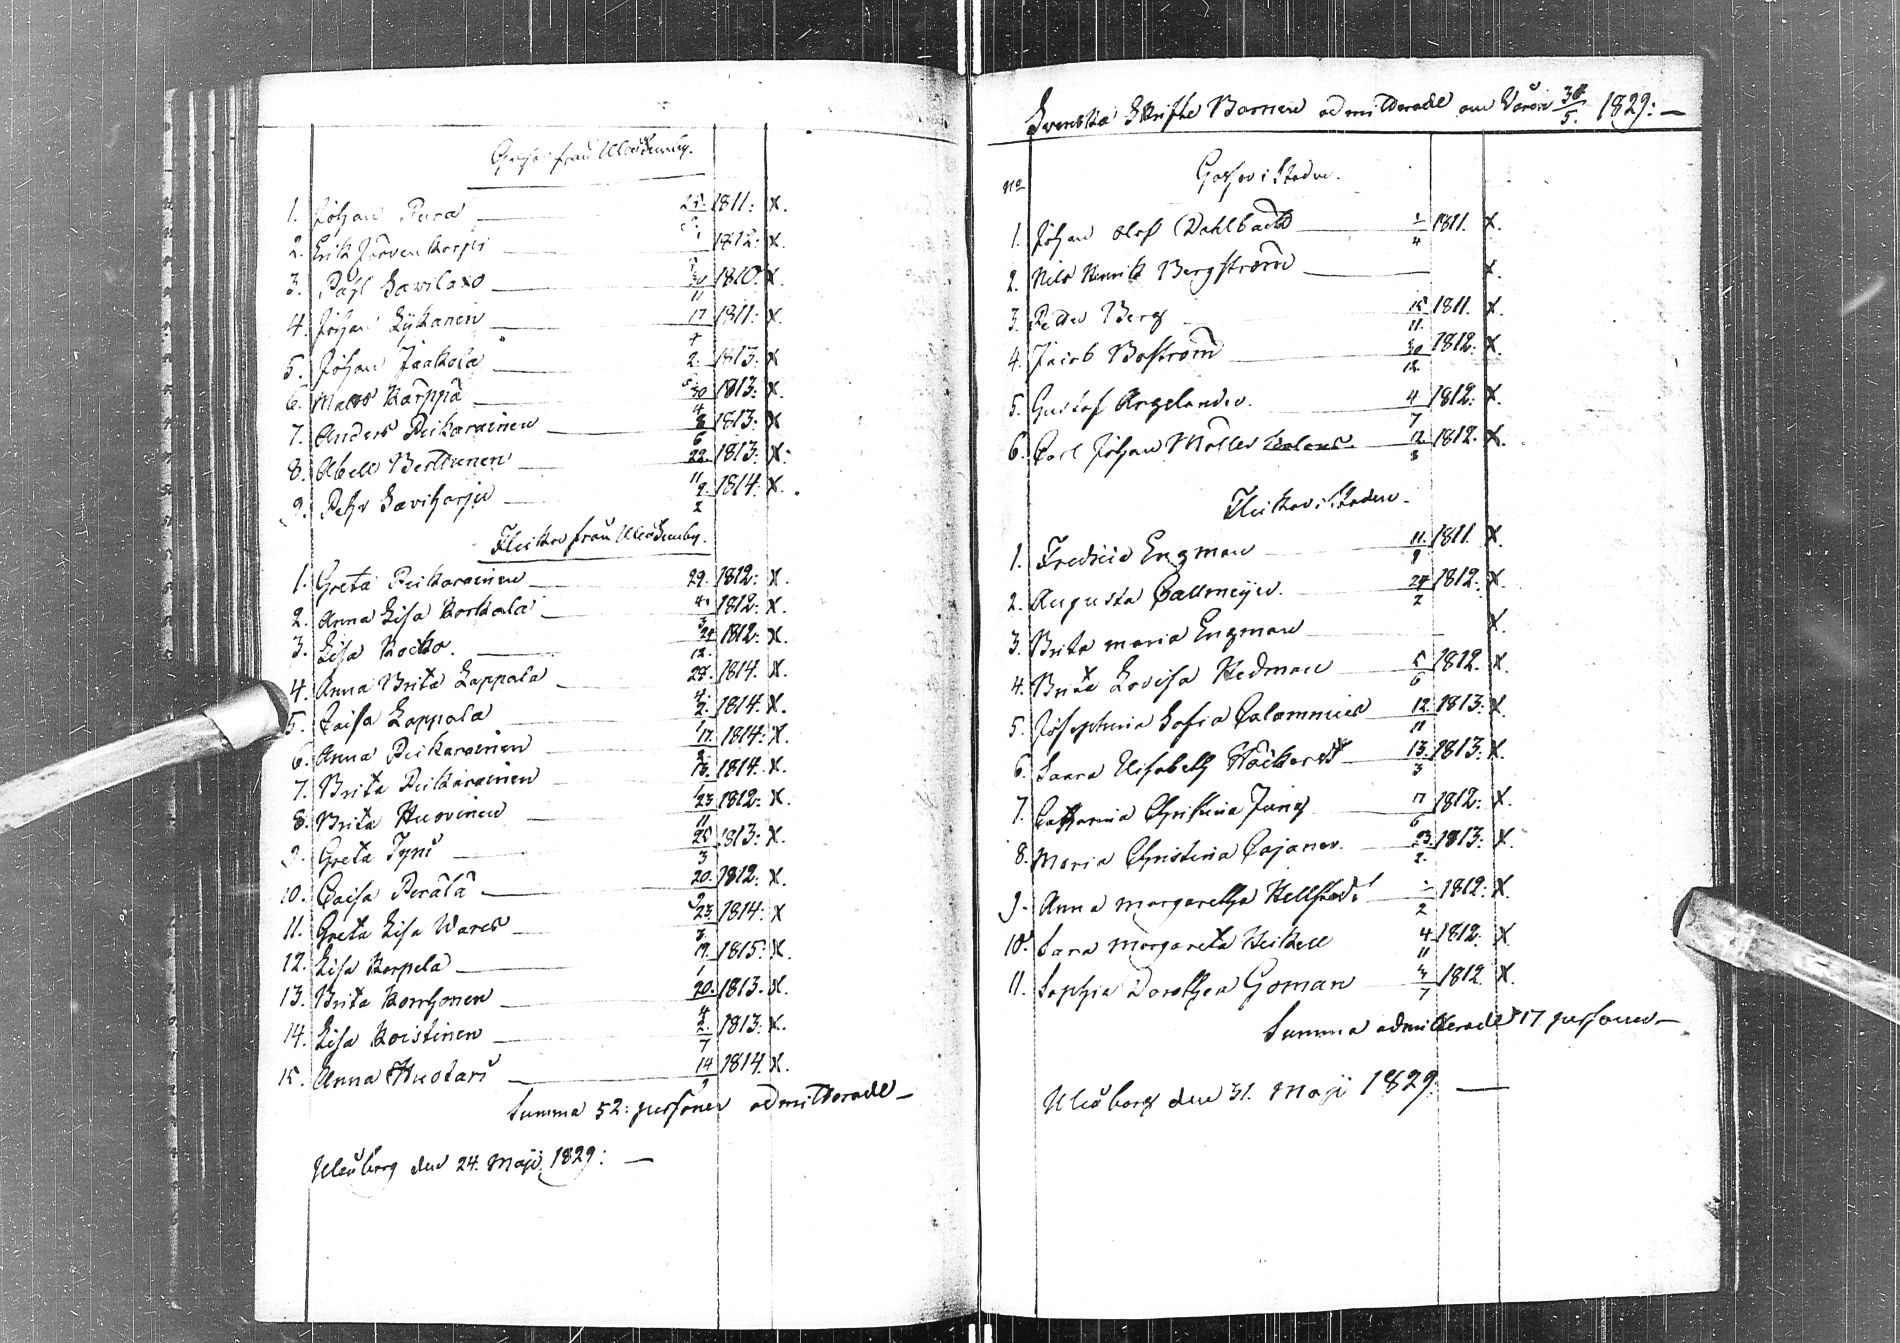 Gossar från Uleåkirkoby.
1. Johan Pura 25. 1811: X.
2. Erik Jarvenkorpi 1812: X.
3. Påhl Savilaxo 30/11 1810. X
4. Johan Lykänen 17 1811: X.
5. Johan Jaakola 2. 1813. X
6. Matts Karppa 30/4 1813: X.
7. Anders Pikarainen 8/6 1813: X
8. Abell Berttunen 22./11 1813: X.
9. Pehr Saviharju 9./2 1814: X.
Flickor från
1. Greta Pikarainen 29. 1812: X.
2. Anna Lisa Korkala 1812: X.
3. Lisa Kocko. 24/12. 1812: X.
4. Anna Brita Lappala 1814. X.
5. Caisa Lappala 2. 1814. X.
6. Anna Pikarainen 17. 1814: X.
7. Brita Pikarainen 13. 1814. X.
8. Brita Huovinen 23/11 1812: X.
9. Greta Tyni 25/3 1813: X.
10. Caisa Perälä 20. 1812: X.
11. Greta Lisa Wares 23/3 1814: X
12. Lisa Korpela 1815: X.
13. Brita Korhonen 20. 1813. X.
14. Lisa Koistinen 2./7 1813: X.
15. Anna Huotari 14 1814. X.
Summa 52: personer admitterade
Uleåborg den 24. Maji 1829:
Svenska Skrifte Barnen admitterade om Våren 30/5. 1829:
No Gossor i Staden.
1. Johan Olof Dahlbacka 1/4 1811. X.
2. Nils Henrik Bergström X.
3. Petter Berg 15/11. 1811. X.
4. Jacob Boström 30/12 1812. X.
5. Gustaf Argelander. 4/7 1812: X.
6. Carl Johan Möller 1812. X.
Flickor i Staden.
1. Fredrica Engman 11. 1811. X.
2. Augusta Callmeijer. 24/2 1812: X.
3. Brita Maria Engman X.
4. Brita Lovisa Hedman 5/6 1812. X.
5. Josephina Sofia Calamnius 12./11 1813: X.
6. Saara Elisabeth 13./3 1813: X.
7. Catharina Christina Jung 17/6 1812: X.
8. Maria Christina Cajaner. 23./2. 1813: X.
9. Anna Margaretha Hellstedt 1812: X
10. Sara Margareta Heikell 4/11 1812. X
11. Sophia Dorothea Goman 3/7 1812 X.
Summa admitterade 17 personer
Uleåborg den 31. Maji 1829: